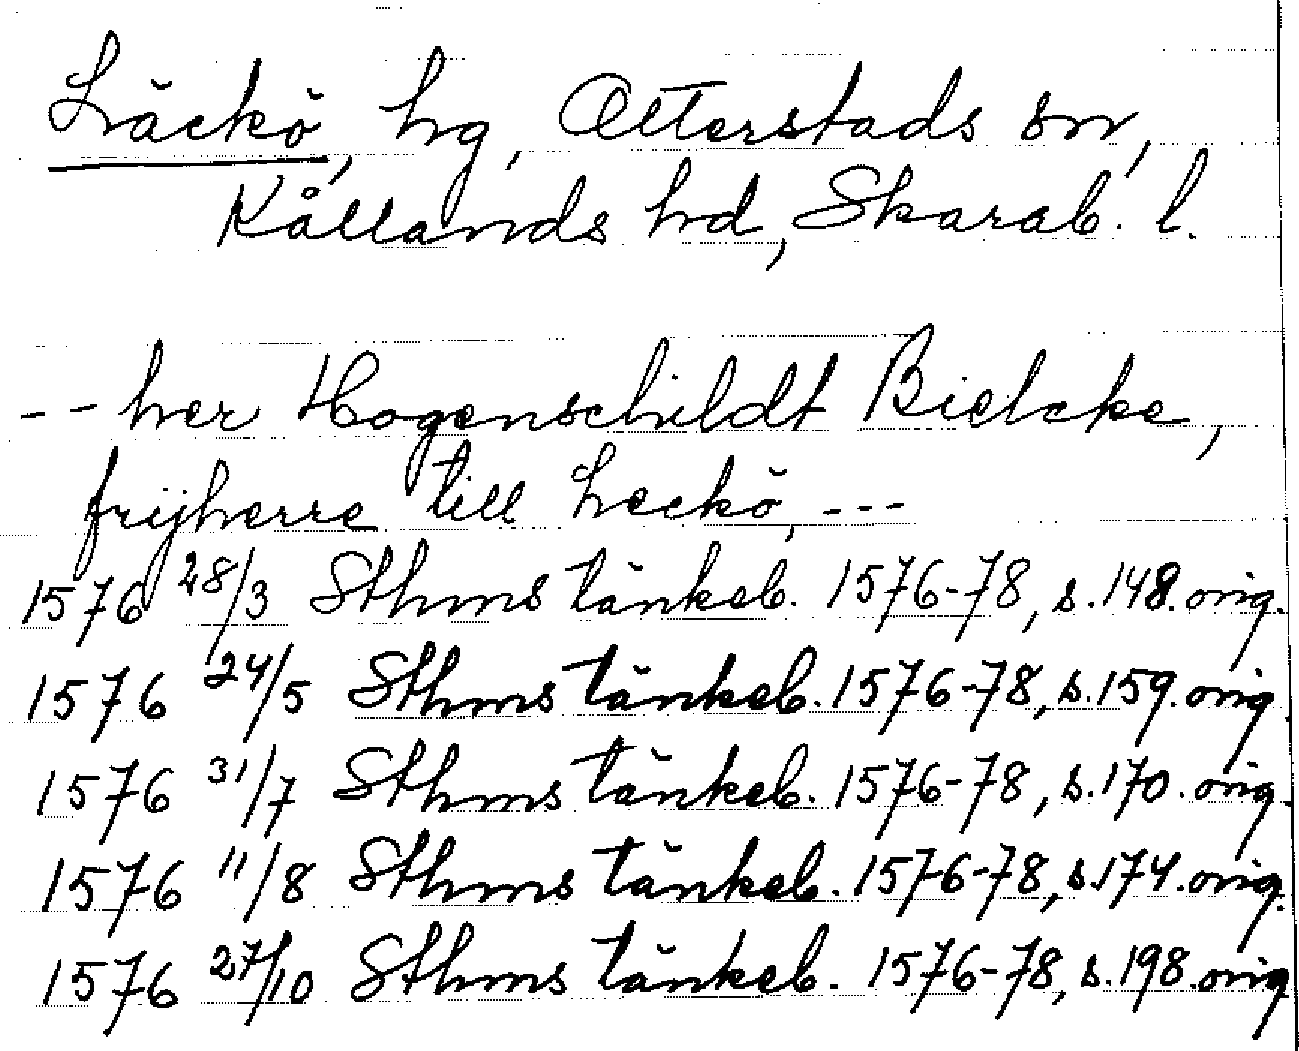 Läckö, hg, Otterstads sn,
Kållands hd, Skarab. l.
-- her Hogenschildt Bielcke,
frijherre till Leckö, ---
1576 28/3 Sthms tänkeb. 1576-78, s.148. orig.
1576 24/5 Sthms tänkeb. 1576-78, s.159. orig.
1576 31/7 Sthms tänkeb. 1576-78, s.170. orig.
1576 11/8 Sthms tänkeb. 1576-78, s.174. orig.
1576 27/10 Sthms tänkeb. 1576-78, s.198. orig